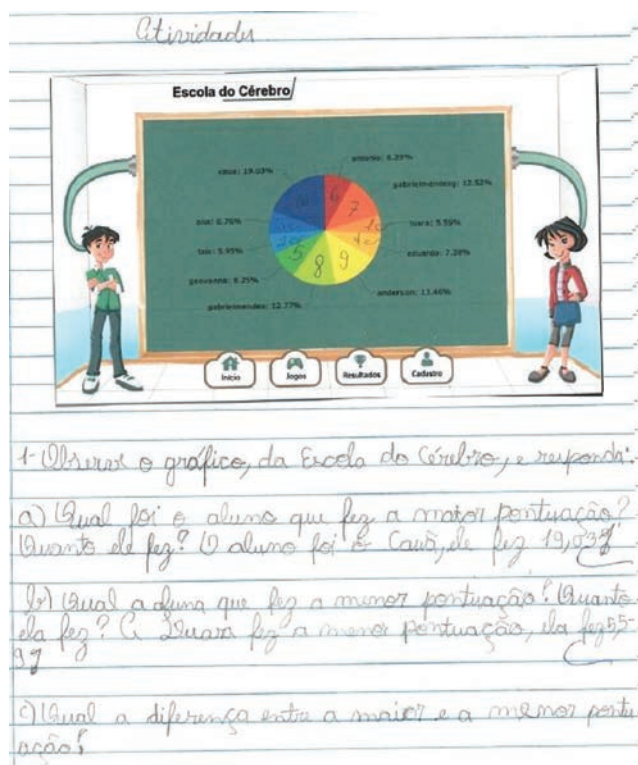 Atividades
Escola do Cérebro
caua: 19.03%
gabrielmendesg: 12.52%
ana: 8.76%
iuara: 5.59%
tais: 5.95%
eduarda: 7.28%
geovanna: 8.25%
anderson: 11.46%
gabrielmendes: 12.77%
6
7
10
5
8
9
Início
Jogos
Resultados
Cadastro
1- Observe o gráfico, da Escola do Cérebro, e responda:
a) Qual foi o aluno que fez a maior pontuação?
Quanto ele fez? O aluno foi o Cauã, ele fez 19,03%
b) Qual a aluna que fez a menor pontuação? Quanto
ela fez? A Iuara fez a menor pontuação, ela fez 5,5-
9%
c) Qual a diferença entre a maior e a menor pontu
ação?